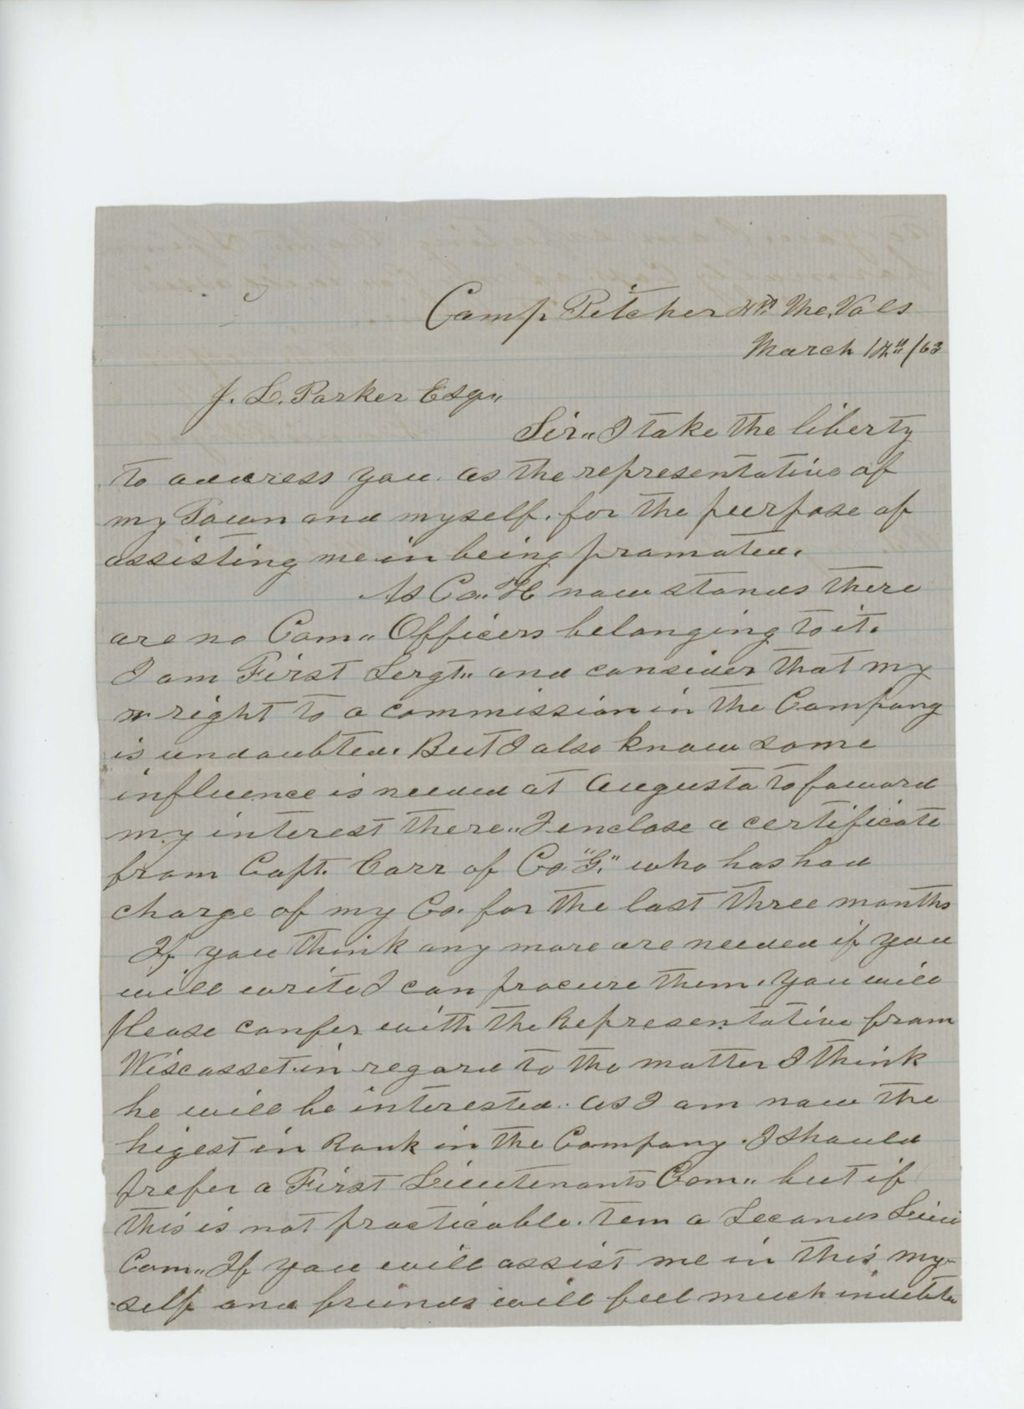 Camp Pitcher 4th Me. Vols
March 14th /63
J. L. Parker Esq,,
Sir,, I take the liberty
to address you as the representative of
my Town and myself. for the purpose of
assisting me in being promoted.
As Co,, H now stands there
are no Com,, Officers belonging to it.
I am First Sergt,, and consider that my
right to a commission in the Company
is undoubted. But I also know some
influence is needed at Augusta to foward
my interest there,, I enclose a certificate
from Capt. Carr of Co. "G," who has had
charge of my Co. for the last three months
If you think any more are needed if you
will write I can procure them. you will
please confer with the Representative from
Wiscasset in regard to the matter I think
he will be interested. as I am now the
higest in Rank in the Company. I should
prefer a First Lieutenants Com,, but if
this is not practicable. tem a Second Lieu
Com,, If you will assist me in this my-
self and freinds will feel much indebte